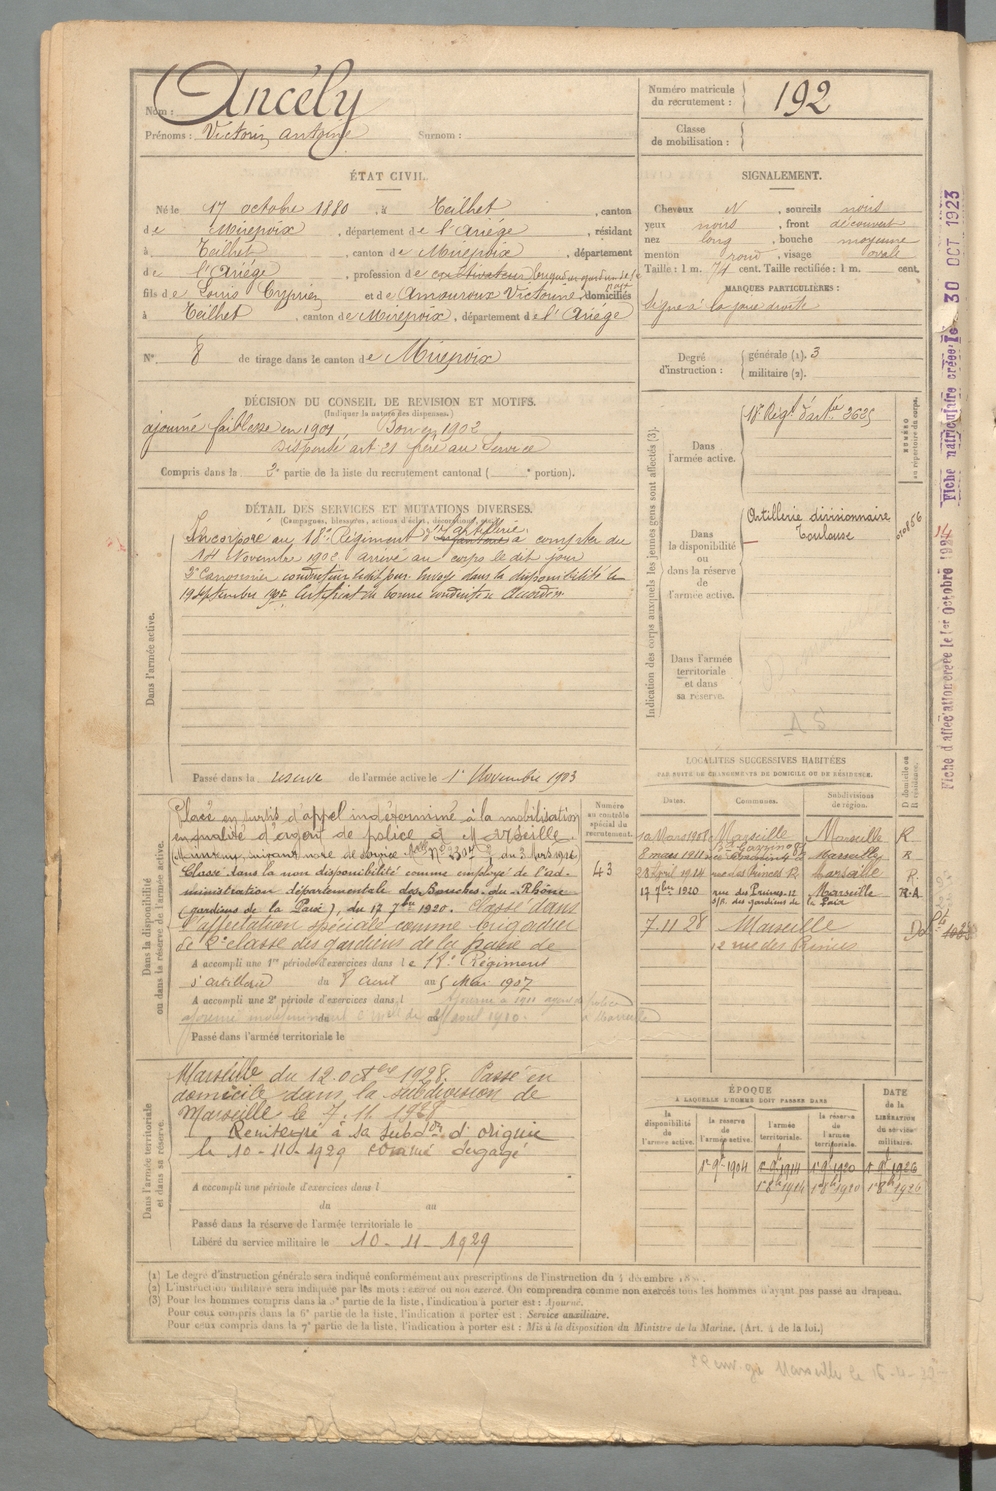 Nom : Ancély
Prénoms : Victorin Antoine Surnom :
Numéro matricule du recrutement : 192
Classe de mobilisation :
ÉTAT CIVIL.
Né le 17 octobre 1880, à Teilhet, canton
de Mirepoix, département de l'Ariège, résidant
à Teilhet, canton de Mirepoix, département
de l'Ariège, profession de cultivateur
fils de Louis Cyprien et de Amouroux Victorine, domiciliés
à Teilhet, canton de Mirepoix, département de l'Ariège
N° 8 de tirage dans le canton de Mirepoix
SIGNALEMENT.
Cheveux N, sourcils noirs
yeux noirs, front découvert
nez long, bouche moyenne
menton rond, visage ovale
Taille : 1 m. 74 cent. Taille rectifiée : 1 m. cent.
MARQUES PARTICULIÈRES :
Signe à la joue droite
Degré d'instruction : générale (1). 3
militaire (2).
DÉCISION DU CONSEIL DE REVISION ET MOTIFS.
(Indiquer la nature des dispenses.)
ajourné faiblesse en 1901 Bon en 1902
Dispensé art 21 frère au Service
Compris dans la 2e partie de la liste du recrutement cantonal ( e portion).
DÉTAIL DES SERVICES ET MUTATIONS DIVERSES.
(Campagnes, blessures, actions d'éclat, décorations, etc.)
Dans l'armée active.
Incorporé au 18e Régiment d'artillerie à compter du
14 Novembre 1902 arrivé au corps le dit jour
2e Canonnier conducteur ledit jour Envoyé dans la disponibilité le
19 septembre 1903 Certificat de bonne conduite Accordé
Passé dans la réserve de l'armée active le 1er Novembre 1903
Indication des corps auxquels les jeunes gens sont affectés (3).
NUMÉRO au répertoire du corps.
Dans l'armée active.
18e Régt d'artie 2625
Dans la disponibilité ou dans la réserve de l'armée active.
Artillerie divisionnaire
Toulouse
Dans l'armée territoriale et dans sa réserve.
Fiche matriculaire créée le 30 OCT. 1923
Dans la disponibilité ou dans la réserve de l'armée active.
Placé en sursis d'appel indéterminé à la mobilisation
en qualité d'agent de police à Marseille.
Classé dans la non disponibilité comme employé de l'ad-
ministration départementale des Bouches-du-Rhône
(gardiens de la Paix), du 17 7bre 1920. Classé dans
l'affectation spéciale comme brigadier
de 2e classe des gardiens de la paix de
Numéro au contrôle spécial du recrutement.
43
A accompli une 1re période d'exercices dans le 18e Régiment
d'artillerie du 8 avril au 5 Mai 1907
A accompli une 2e période d'exercices dans l
Passé dans l'armée territoriale le
LOCALITÉS SUCCESSIVES HABITÉES
PAR SUITE DE CHANGEMENTS DE DOMICILE OU DE RÉSIDENCE.
Dates. Communes. Subdivisions de région. D domicile ou R résidence.
10 Mars 1908 Marseille Marseille R
8 mars 1911 Marseille R
28 Avril 1914 rue des Princes Marseille R.
17 7bre 1920 rue des Princes 12 Marseille R.A
s/c. des gardiens de la Paix
7.11.28 Marseille D
12 rue des Princes
Dans l'armée territoriale et dans sa réserve.
Marseille du 12 octbre 1928. Passé en
domicile dans la subdivision de
Marseille le 7.11.1928
Réintégré à sa subdon d'origine
le 10-11-1929 comme dégagé
A accompli une période d'exercices dans l
du au
Passé dans la réserve de l'armée territoriale le
Libéré du service militaire le 10-11-1929
ÉPOQUE
À LAQUELLE L'HOMME DOIT PASSER DANS
la disponibilité de l'armée active.
la réserve de l'armée active.
l'armée territoriale.
la réserve de l'armée territoriale.
DATE de la LIBÉRATION du service militaire.
1er 9bre 1904 1er 9bre 1914 1er 9bre 1920 1er 9bre 1926
1er 8bre 1914 1er 8bre 1920 1er 8bre 1926
(1) Le degré d'instruction générale sera indiqué conformément aux prescriptions de l'instruction du 4 décembre
(2) L'instruction militaire sera indiquée par les mots : exercé ou non exercé. On comprendra comme non exercés tous les hommes n'ayant pas passé au drapeau.
(3) Pour les hommes compris dans la 5e partie de la liste, l'indication à porter est : Ajourné.
Pour ceux compris dans la 6e partie de la liste, l'indication à porter est : Service auxiliaire.
Pour ceux compris dans la 7e partie de la liste, l'indication à porter est : Mis à la disposition du Ministre de la Marine. (Art. 4 de la loi.)